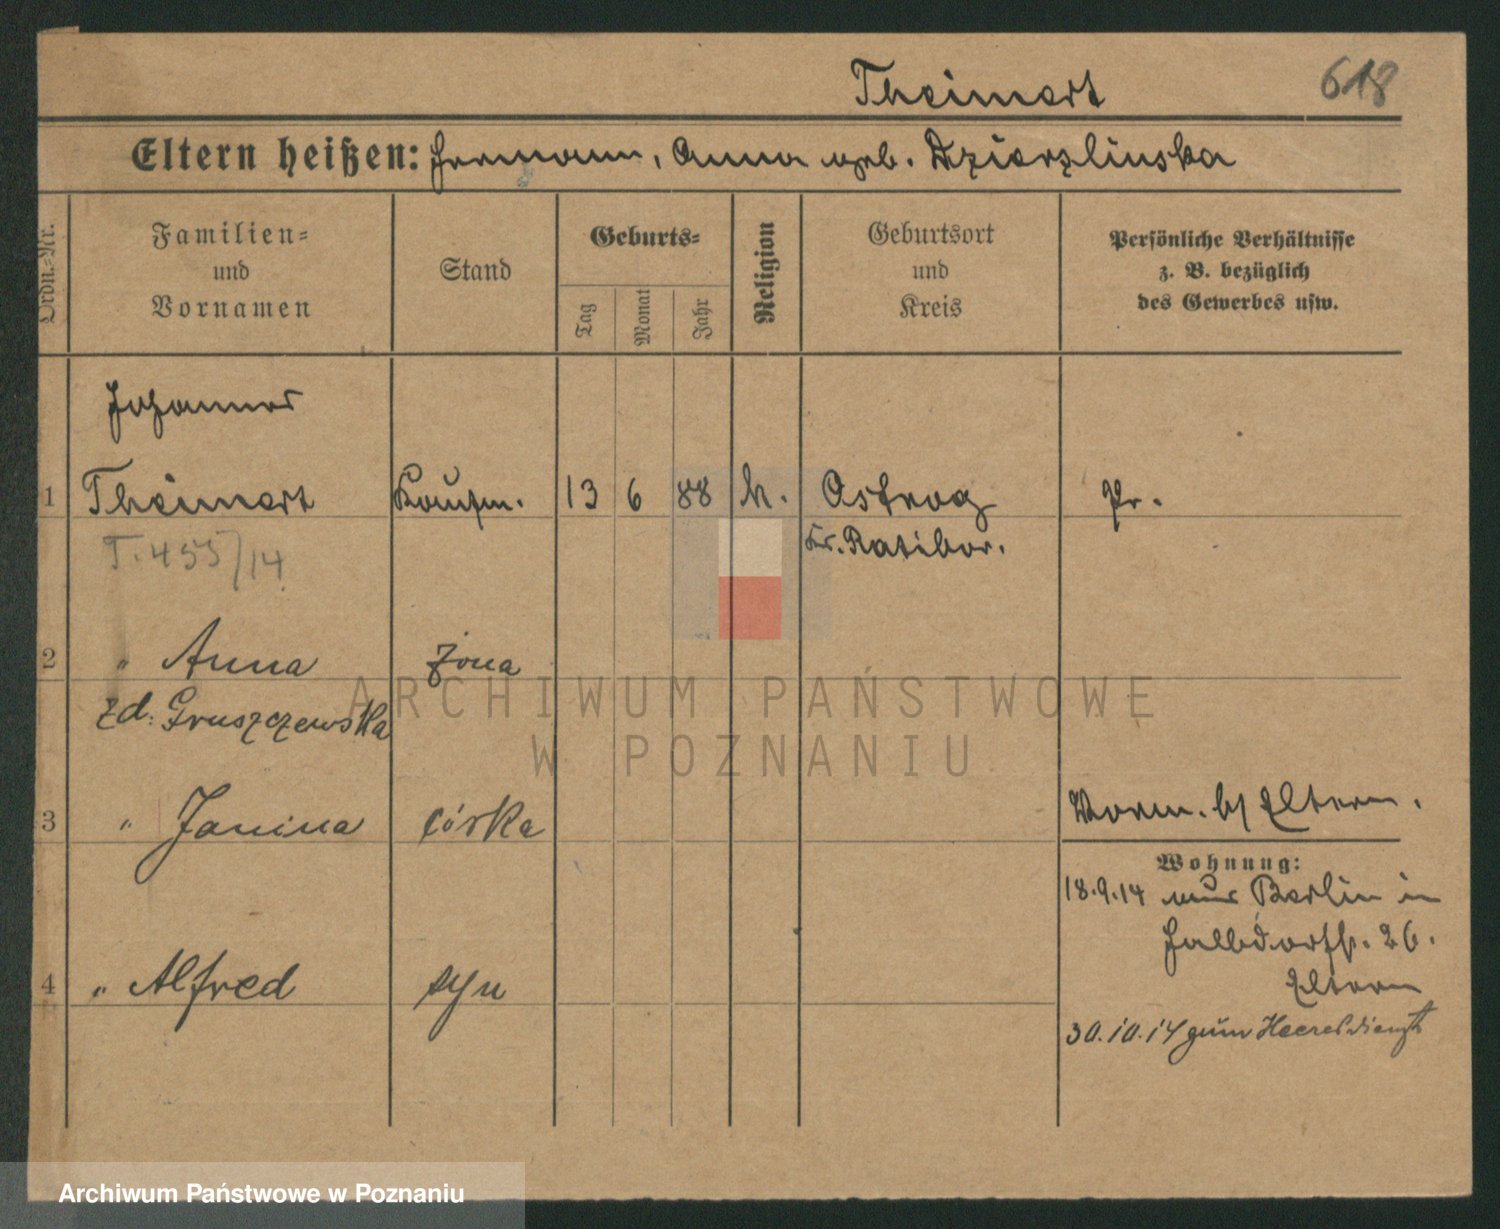 Theimert 618
Eltern heißen: Hermann, Anna geb. Dzierzlinska
Ordn.-Nr.
Familien=
und
Vornamen
Stand
Geburts=
Tag
Monat
Jahr
Religion
Geburtsort
und
Kreis
Persönliche Verhältnisse
z. B. bezüglich
des Gewerbes usw.
Johannes
1 Theimert Kaufm. 13 6 88 k. Ostrog Pr.
T. 455/14 Kr. Ratibor.
2 " Anna żona
zd: Gruszczewska
3 " Janina córka
Vorm. b/ Eltern.
Wohnung:
18.9.14 aus Berlin in
26.
4 " Alfred syn
Eltern
30.10.14 zum Heeresdienst
ARCHIWUM PAŃSTWOWE
W POZNANIU
Archiwum Państwowe w Poznaniu